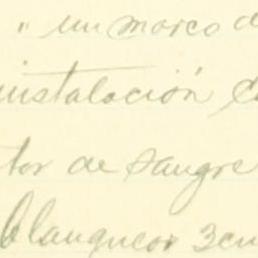 " un marco d
instalación d
tor de sangre
blanqueor 3cu